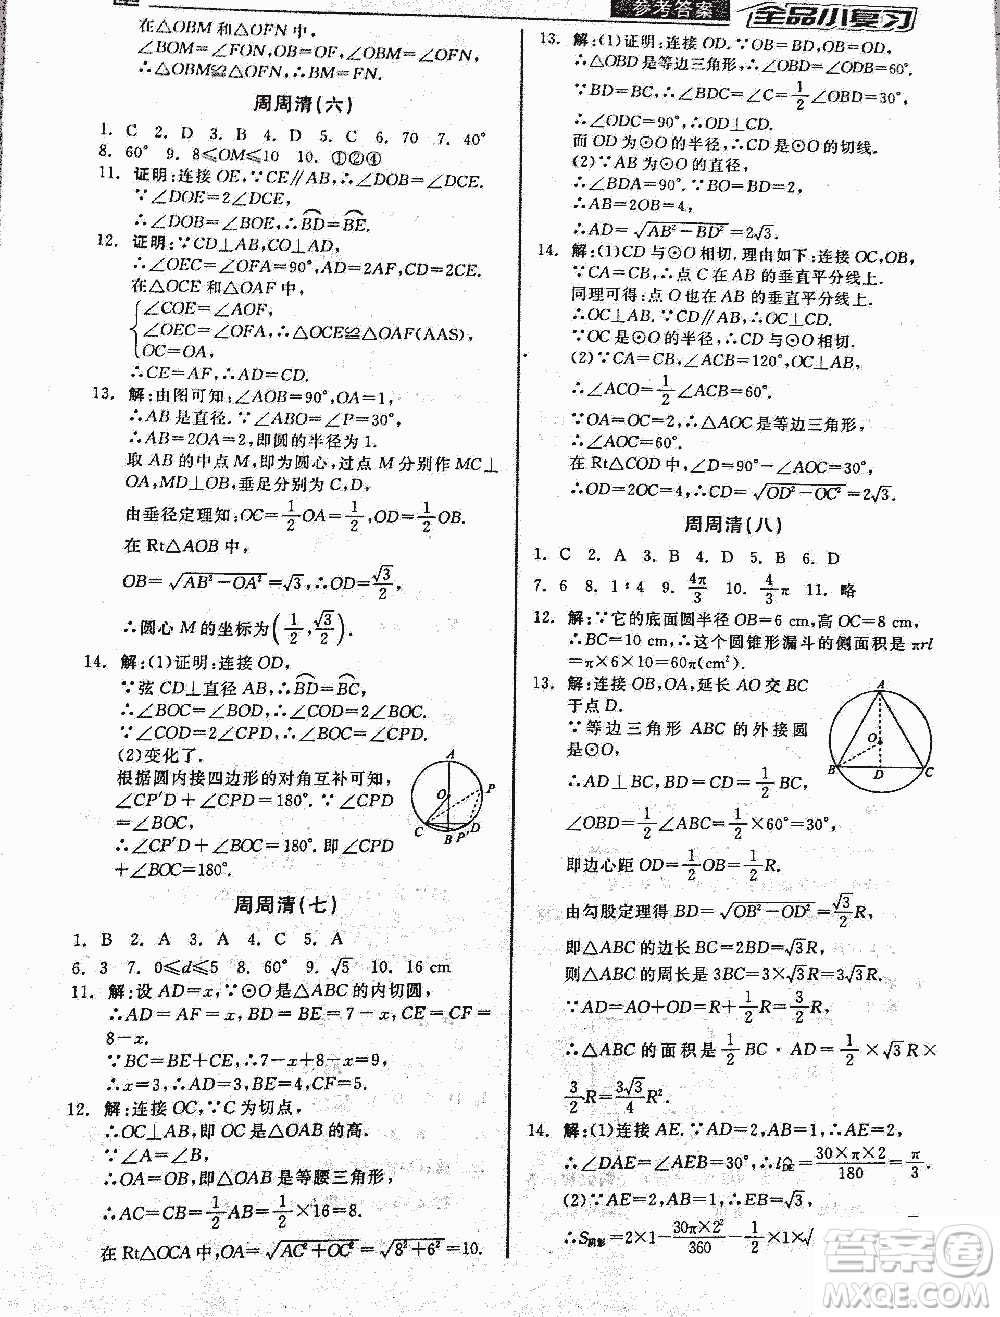 参考答案
全品小复习
在△OBM 和△OFN 中,
∠BOM=∠FON,OB=OF,∠OBM=∠OFN,
∴△OBM≌△OFN,∴BM=FN.
周周清(六)
1. C 2. D 3. B 4. D 5. C 6. 70 7. 40°
8. 60° 9. 8≤OM≤10 10. ①②④
11. 证明:连接 OE,∵CE∥AB,∴∠DOB=∠DCE.
∵∠DOE=2∠DCE,
∴∠DOB=∠BOE,∴BD=BE.
12. 证明:∵CD⊥AB,CO⊥AD,
∴∠OEC=∠OFA=90°,AD=2AF,CD=2CE.
在△OCE 和△OAF 中,
∠COE=∠AOF,
∠OEC=∠OFA,∴△OCE≌△OAF(AAS)
OC=OA,
∴CE=AF,∴AD=CD.
13. 解:由图可知,∠AOB=90°,OA=1,
∴AB 是直径.∵∠ABO=∠P=30°,
∴AB=2OA=2,即圆的半径为 1.
取 AB 的中点 M,即为圆心,过点 M 分别作 MC⊥
OA,MD⊥OB,垂足分别为 C,D,
由垂径定理知:OC=1/2 OA=1/2,OD=1/2 OB.
在 Rt△AOB 中,
OB=√(AB²−OA²)=√3,∴OD=√3/2,
∴圆心 M 的坐标为(1/2,√3/2)
14. 解:(1)证明:连接 OD,
∵弦 CD⊥直径 AB,∴BD=BC,
∴∠BOC=∠BOD,∴∠COD=2∠BOC.
∵∠COD=2∠CPD,∴∠CPD=∠BOC.
(2)变化了.
根据圆内接四边形的对角互补可知,
∠CP′D+∠CPD=180°.∵∠CPD
=∠BOC,
∴∠CP′D+∠BOC=180°.即∠CP′D
+∠BOC=180°.
A
O
P
C
B P′ D
周周清(七)
1. B 2. A 3. A 4. C 5. A
6. 3 7. 0≤d≤5 8. 60° 9. √5 10. 16 cm
11. 解:设 AD=x,∵⊙O是△ABC 的内切圆,
∴AD=AF=x,BD=BE=7−x,CE=CF=
8−x.
∵BC=BE+CE,∴7−x+8−x=9,
∴x=3,∴AD=3,BE=4,CF=5.
12. 解:连接 OC,∵C 为切点,
∴OC⊥AB,即 OC 是△OAB 的高.
∵∠A=∠B,
∴OA=OB,即△OAB 是等腰三角形,
∴AC=CB=1/2 AB=1/2×16=8.
在 Rt△OCA 中,OA=√(AC²+OC²)=√(8²+6²)=10.
13. 解:(1)证明:连接 OD.∵OB=BD,OB=OD,
∴△OBD 是等边三角形,∴∠OBD=∠ODB=60°.
∵BD=BC,∴∠BDC=∠C=1/2∠OBD=30°,
∴∠ODC=90°,∴OD⊥CD.
而 OD 为⊙O 的半径,∴CD 为⊙O 的切线.
(2)∵AB 为⊙O 的直径,
∴∠BDA=90°.∵BO=BD=2,
∴AB=2OB=4,
∴AD=√(AB²−BD²)=2√3.
14. 解:(1)CD 与⊙O 相切.理由如下:连接 OC,OB,
∵CA=CB,∴点 C 在 AB 的垂直平分线上.
同理可得:点 O 也在 AB 的垂直平分线上.
∴OC⊥AB.∵CD∥AB,∴OC⊥CD.
∵OC 是⊙O 的半径,∴CD 与⊙O 相切.
(2)∵CA=CB,∠ACB=120°,OC⊥AB,
∴∠ACO=1/2∠ACB=60°.
∵OA=OC=2,∴△AOC 是等边三角形,
∴∠AOC=60°.
在 Rt△COD 中,∠D=90°−∠AOC=30°,
∴OD=2OC=4,∴CD=√(OD²−OC²)=2√3.
周周清(八)
1. C 2. A 3. B 4. D 5. B 6. D
7. 6 8. 1∶4 9. 4π/3 10. 4/3 π 11. 略
12. 解:∵它的底面圆半径 OB=6 cm,高 OC=8 cm,
∴BC=10 cm,∴这个圆锥形漏斗的侧面积是 πrl
=π×6×10=60π(cm²).
13. 解:连接 OB,OA,延长 AO 交 BC
于点 D.
∵等边三角形 ABC 的外接圆
是⊙O,
∴AD⊥BC,BD=CD=1/2 BC,
∠OBD=1/2∠ABC=1/2×60°=30°,
即边心距 OD=1/2 OB=1/2 R.
由勾股定理得 BD=√(OB²−OD²)=√3/2 R,
即△ABC 的边长 BC=2BD=√3R,
则△ABC 的周长是 3BC=3×√3R=3√3R,
∵AD=AO+OD=R+1/2 R=3/2 R,
∴△ABC 的面积是 1/2 BC·AD=1/2×√3R×
3/2 R=3√3/4 R².
A
O
B D C
14. 解:(1)连接 AE.∵AD=2,∴AE=2,
∴∠DAE=∠AEB=30°,∴lDE=30×π×2/180=π/3.
(2)∵AE=2,AB=1,∴EB=√3,
∴S阴影=2×1−30π×2²/360−1/2×√
答案圈